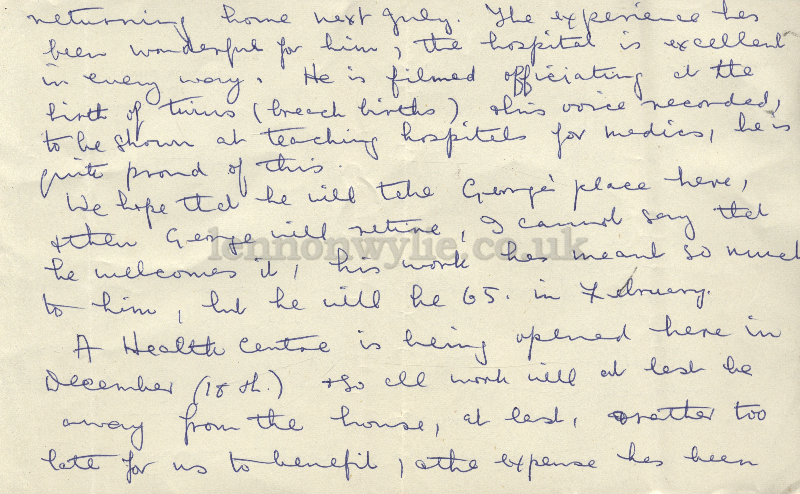 returning home next July. The experience has
been wonderful for him, the hospital is excellent
in every way. He is filmed officiating at the
birth of twins (breach births) & his voice recorded,
to be shown at teaching hospitals for medics, he is
quite proud of this.
We hope that he will take George's place here,
& then George will retire, I cannot say that
lennonwylie.co.uk
he welcomes it, his work has meant so much
to him, but he will be 65. in February.
A Health Centre is being opened here in
December (18th.) & so all work will at last be
away from the house, at last, rather too
late for us to benefit, & the expense has been